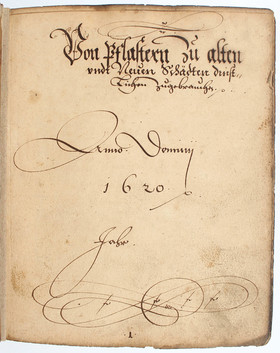 Von Pflastern Zu alten
vndt Neuen Schäden dinst-
lichen zugebrauchen.
Anno Domini
1620
Jahr.
1